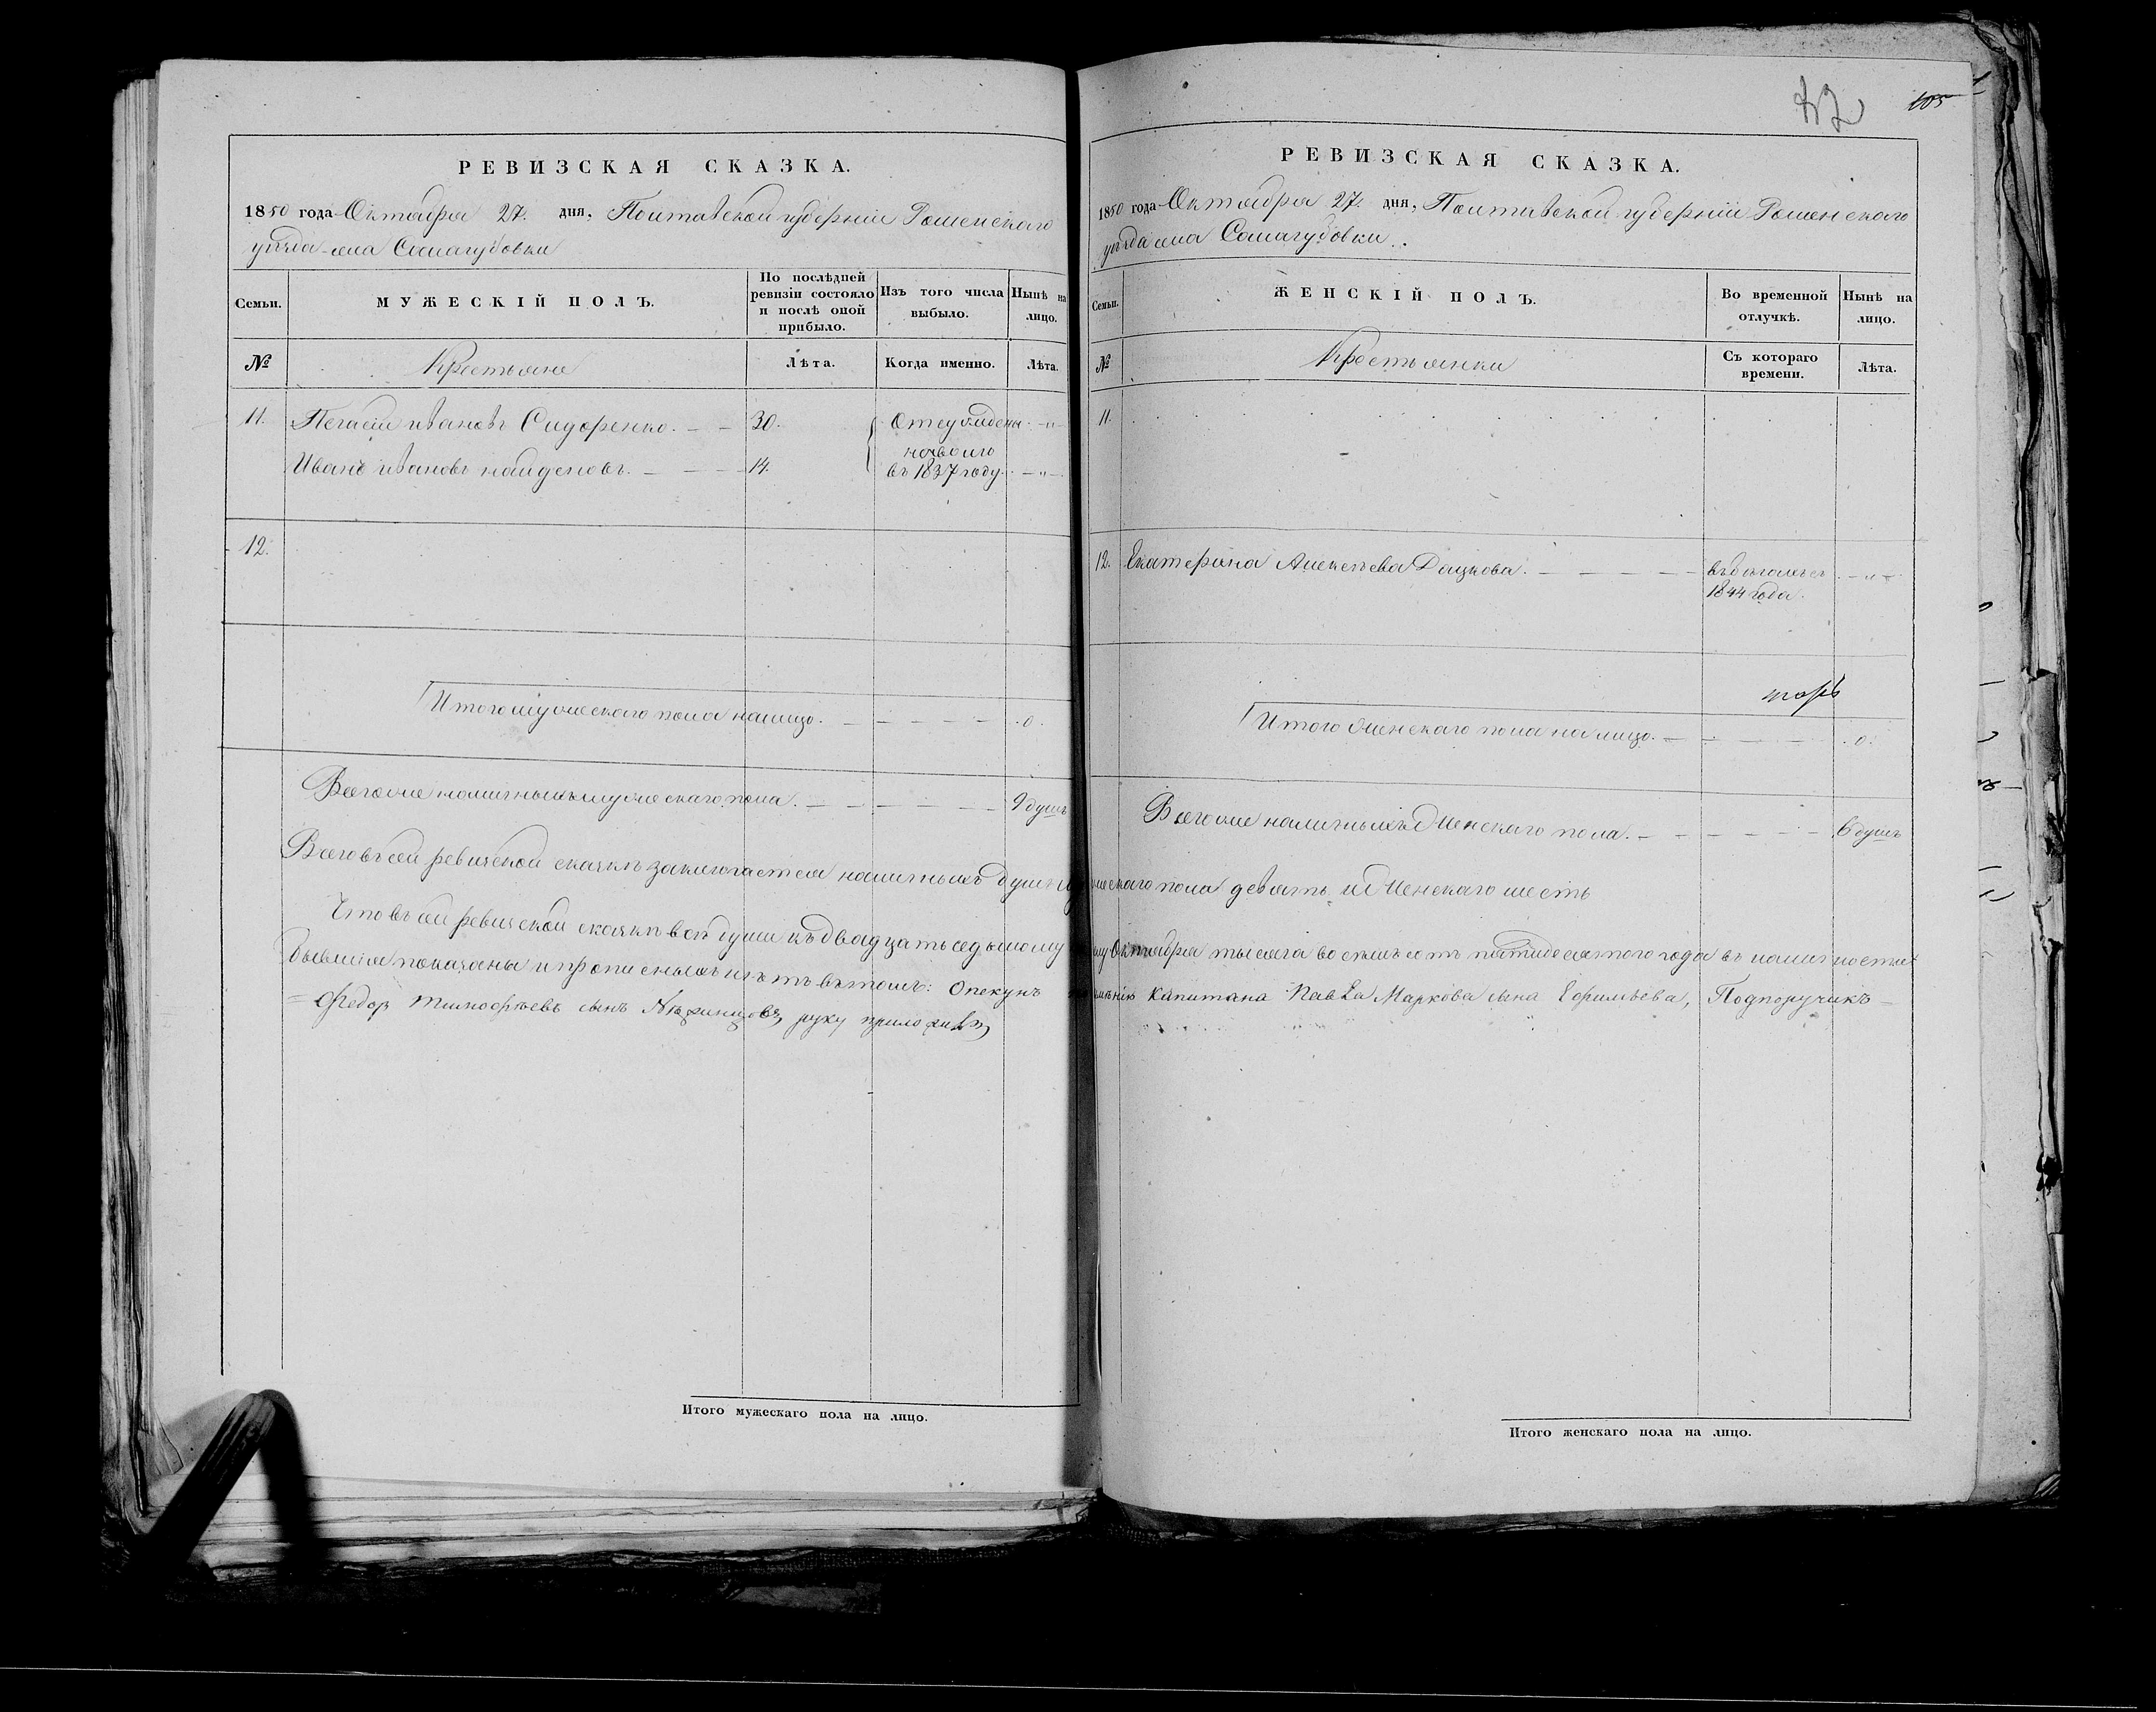 42
105
РЕВИЗСКАЯ СКАЗКА.
1850 года Октября 27. дня, Полтавской губерніи Роменскаго
уѣзда села Сологубовки
Семьи.
МУЖЕСКІЙ ПОЛЪ.
По послѣдней ревизіи состояло и послѣ оной прибыло.
Изъ того числа выбыло.
Нынѣ на лицо.
№
Крестьяне
Лѣта.
Когда именно.
Лѣта.
11. Иванов Сидоренко. 30. Отсуждены
Иванъ Ивановъ найденовъ. 14. на волю
въ 1837 году
12.
Итого мужескаго пола налицо. 0.
Всего же наличныхъ мужескаго пола. 9 душъ
Всего въ сей ревизской сказкѣ заключается наличныхъ душъ
Что въ сей ревизской сказкѣ всѣ души къ двадцать седьмому
бывшіе показаны и прописныхъ нѣтъ въ томъ: Опекунъ
Федоръ Тимофѣевъ сынъ руку приложилъ
Итого мужескаго пола на лицо.
РЕВИЗСКАЯ СКАЗКА.
1850 года Октября 27. дня, Полтавской губерніи Роменскаго
уѣзда села Сологубовки.
Семьи.
ЖЕНСКІЙ ПОЛЪ.
Во временной отлучкѣ.
Нынѣ на лицо.
№
Крестьянки
Съ котораго времени.
Лѣта.
11.
12. Екатерина Алексѣева Дацкова. въ бѣгахъ съ
1844 года.
Итого женскаго пола на лицо. 0.
Всего же наличныхъ женскаго пола. 6 душъ
мужескаго пола девять и женскаго шесть
Октября тысяча восемьсотъ пятидесятого года въ наличности
имѣнія Капитана Павла Маркова сына Ефимьева, Подпоручикъ
Итого женскаго пола на лицо.